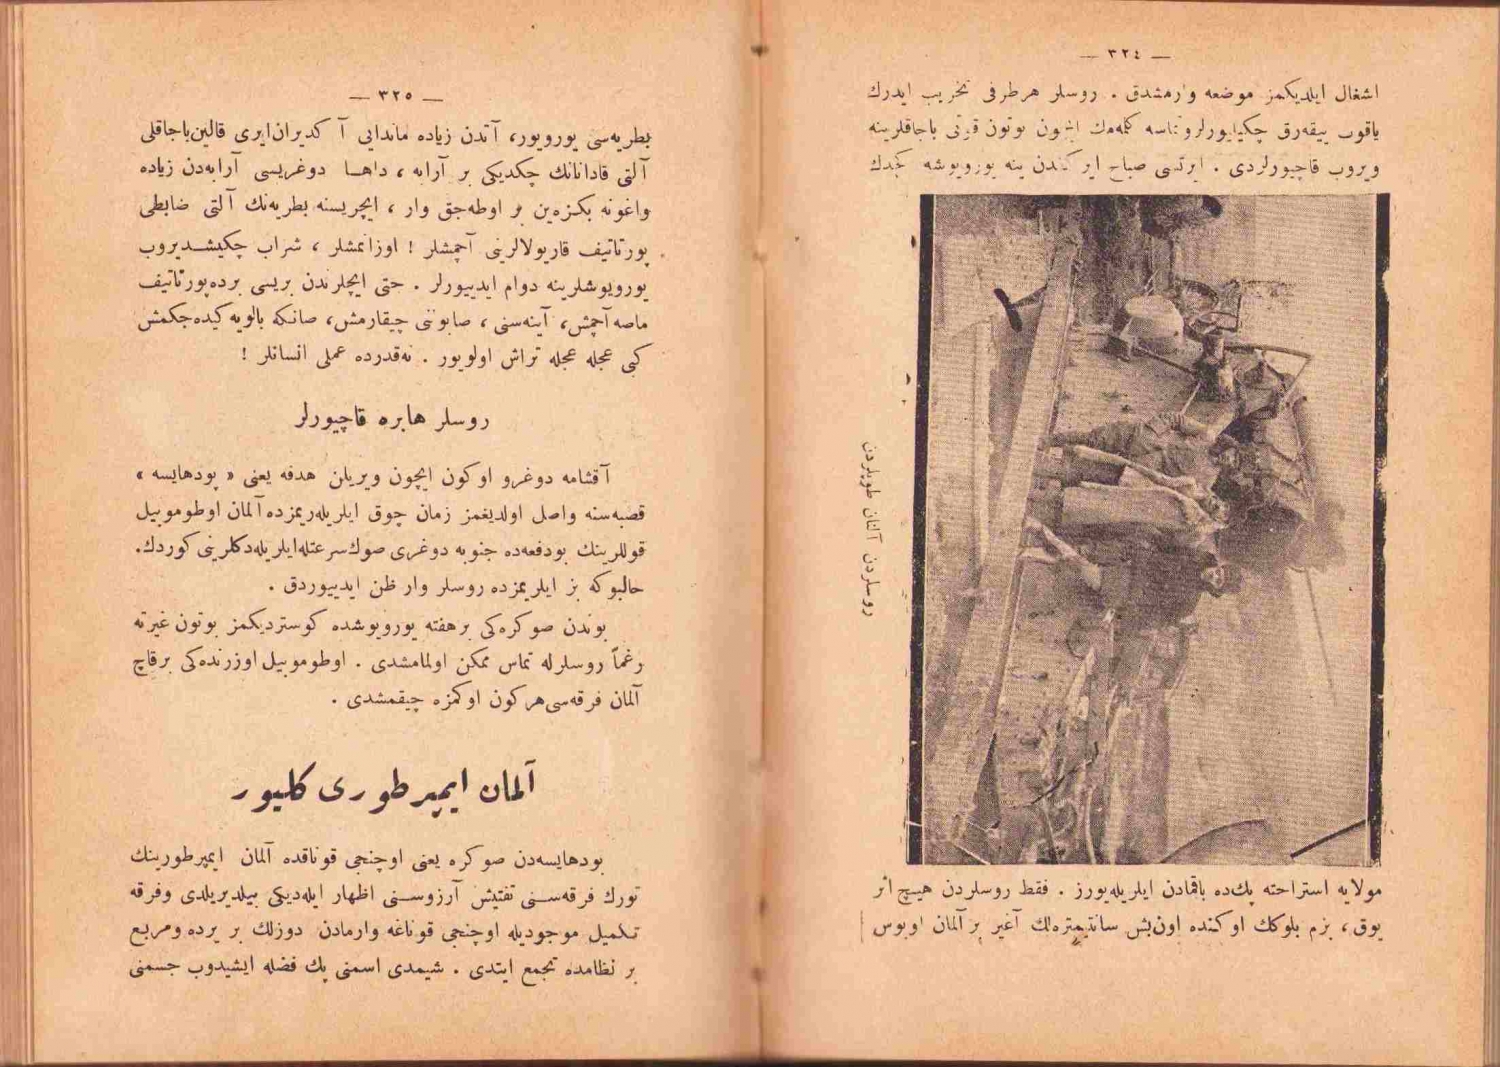 — ٣٢٤ —
اشغال ایلدیكمز موضعه وارمشدق . روسلر هرطرفی تخریب ایدرك
یاقوب ییقەرق چكیلیورلروتماسه كلمەمك ایچون بوتون قوتی باجاقلرینه
ویروب قاچیورلردی . ایرتسی صباح ایركندن ینه یورویوشه كچدك
روسلردن آلنان طوپلردن
مولایه استراحته پك‌ده باقمادن ایلریله‌یورز . فقط روسلردن هیچ اثر
یوق ، بزم بلوكك اوكنده اون‌بش سانتیمتره‌لك آغیر بر آلمان اوبوس
— ٣٢٥ —
بطریه‌سی یورویور، آتدن زیاده ماندایی آكدیران‌ایری قالین‌باجاقلی
آلتی قادانانك چكدیكی بر آرابه ، داهـا دوغریسی آرابه‌دن زیاده
واغونه بكزه‌ین بر اوطه‌جق وار ، ایچریسنه بطریه‌نك آلتی ضابطی
پورتاتیف قاریولالرینی آچمشلر ! اوزانمشلر ، شراب چكیشـدیروب
یورویوشلرینه دوام ایدییورلر . حتی ایچلرندن بریسی برده‌پورتاتیف
ماصه آچمش، آینه‌سنی ، صابوننی چیقارمش، صانكه بالویه كیده‌جكمش
كبی عجله عجله تراش اولویور . نه‌قدرده عملی انسانلر !
روسلر هابره قاچیورلر
آقشامه دوغرو اوكون ایچون ویریلن هدفه یعنی « پودهایسه »
قصبه‌سنه واصل اولدیغمز زمان چوق ایلریله‌ریمزده آلمان اوطوموبیل
قوللرینك بودفعه‌ده جنوبه دوغری صوك‌سرعتله‌ایلریله‌دكلرینی كوردك.
حالبوكه بز ایلریمزده روسلر وار ظن ایدییوردق .
بوندن صوكره‌كی برهفته یورویوشده كوستردیكمز بوتون غیرته
رغماً روسلرله تماس ممكن اولمامشدی . اوطوموبیل اوزرنده‌كی برقاچ
آلمان فرقه‌سی‌هركون اوكمزه چیقمشدی .
آلمان ایمپرطوری كلیور
بودهایسه‌دن صوكره یعنی اوچنجی قوناقده آلمان ایمپرطورینك
تورك فرقه‌سـنی تفتیش آرزوسـنی اظهار ایله‌دیكی بیلدیریلدی وفرقه
تكمیل موجودیله اوچنجی قوناغه وارمادن دوزلك بر یرده ومربع
بر نظامده تجمع ایتدی . شیمدی اسمنی پك فضله ایشیدوب جسمنی